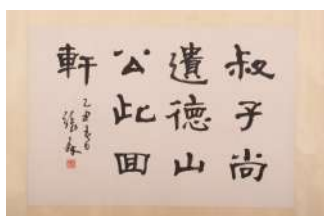 叔子尚
遺德山
公此回
軒
乙丑春月
張森